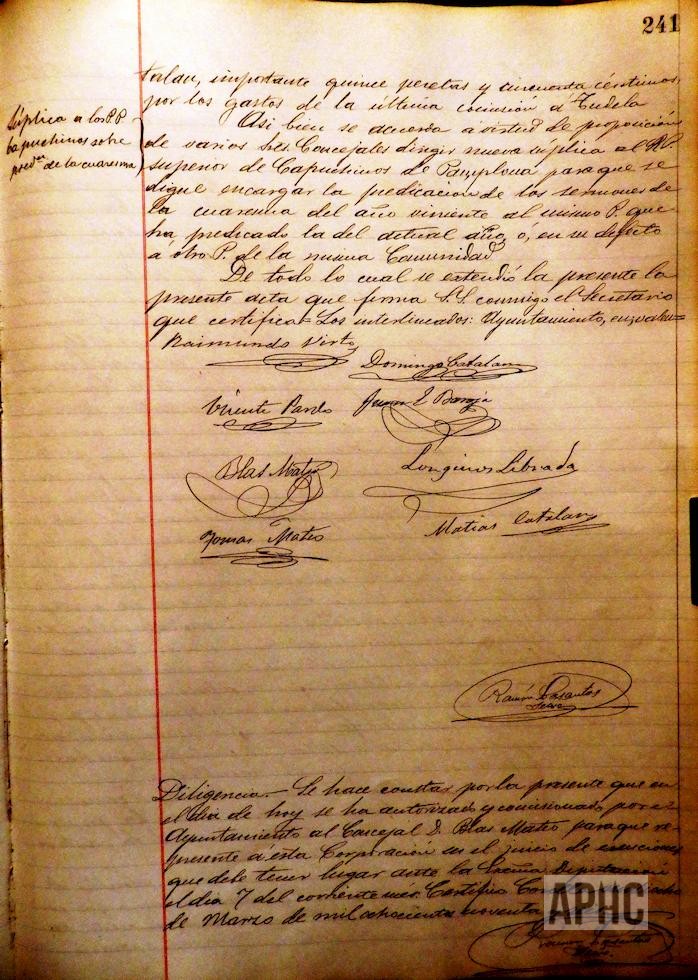 241
importante quince pesetas y cincuenta céntimos,
por los gastos de la última comisión á Tudela
Súplica a los P.P.
Capuchinos sobre
pred.ón de la cuaresma
Asi bien se acuerda á virtud de proposición
de varios Sres. Concejales dirigir nueva súplica al R.P.
superior de Capuchinos de Pamplona para que se
digne encargar la predicacion de los sermones de
la cuaresma del año viniente al mismo P. que
ha predicado la del actual año, ó, en su defecto
á otro P. de la misma Comunidad
De todo lo cual se estendió la presente la
presente acta que firma S.S. conmigo el Secretario
que certifico = Los interlineados: Ayuntamiento,
Raimundo Virto
Domingo Catalan
Vicente Pardo
Juan E. Baroja
Blas Mateo
Longinos Librada
Tomas Mateo
Matias Catalan
Ramón Lasantos
Diligencia.- Se hace constar por la presente que en
el dia de hoy se ha autorizado y comisionado por el
Ayuntamiento al Concejal D. Blas Mateo para que re-
presente á esta Corporación en el juicio de exenciones
que debe tener lugar ante la Excma. Diputación
el dia 7 del corriente mes. Certifico
de Marzo de mil ochocientos noventa
APHC